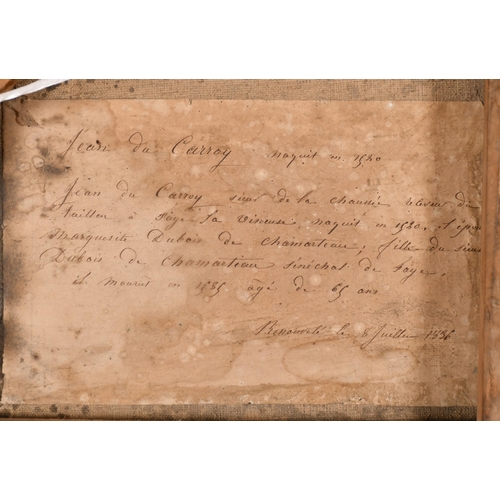 Jean du Carroy naquit en 1520
Jean du Carroy sieur de la chaunié receveur de
tailles à Faye la vineuse naquit en 1520, il épou
Marguerite Dubois de Chamarteau, fille du sieur
Dubois de Chamarteau sénéchal de Faye,
il mourut en 1585 âgé de 65 ans
Renouvelé le 6 Juillet 1836